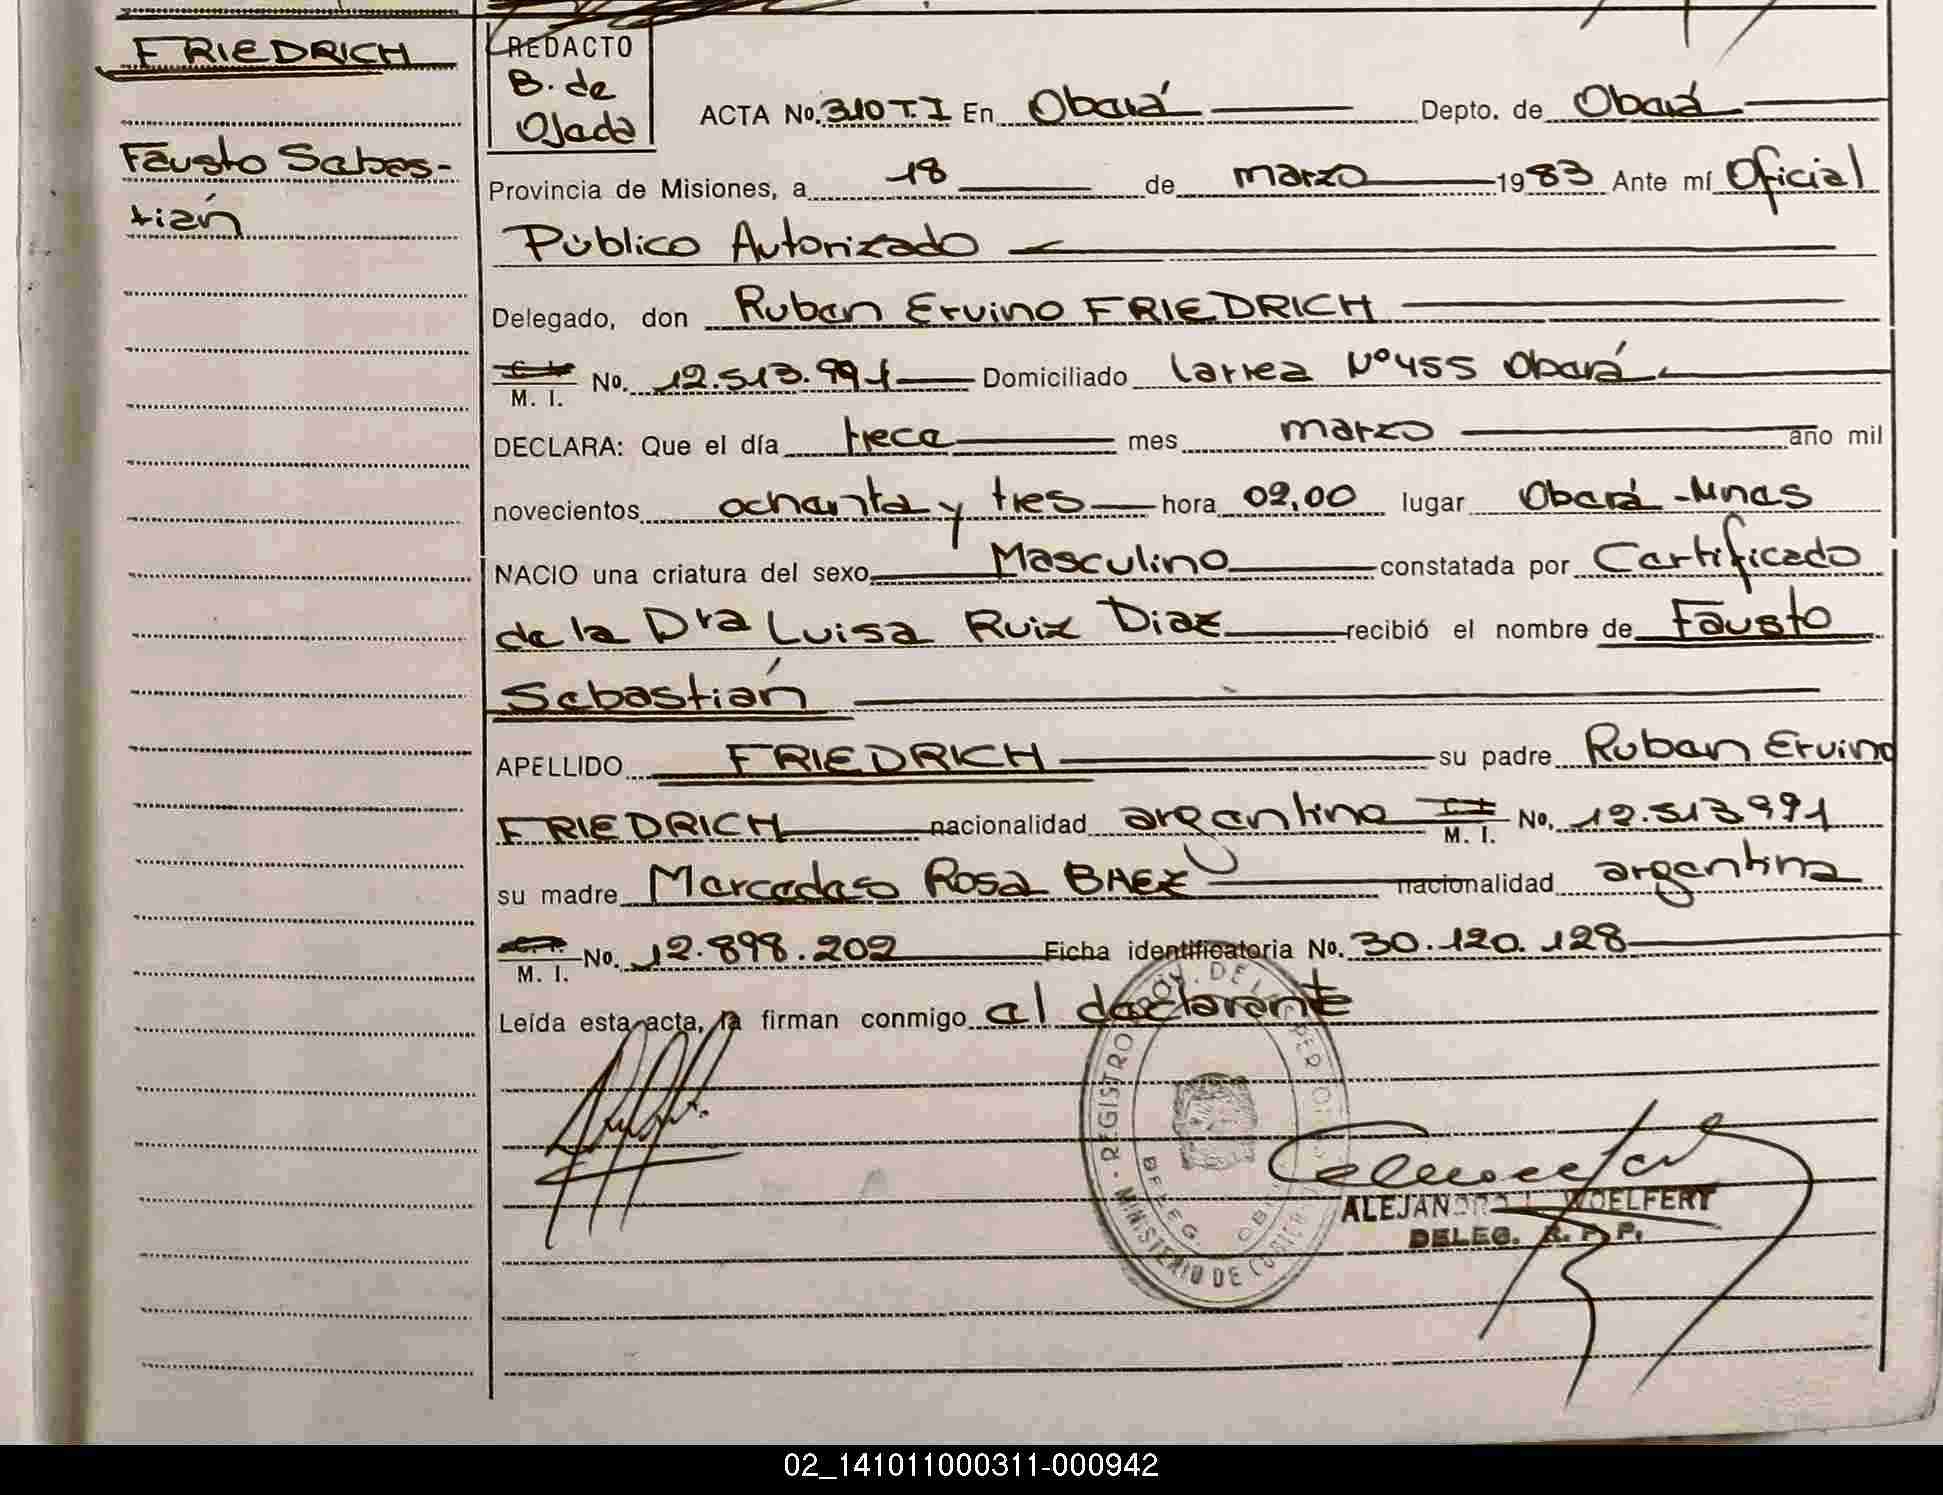 FRIEDRICH
Fausto Sebas-
tián
REDACTO
B. de
Ojeda
ACTA No. 310 T.I En Oberá Depto. de Oberá
Provincia de Misiones, a 18 de marzo 1983 Ante mí Oficial
Público Autorizado
Delegado, don Ruben Ervino FRIEDRICH
M. I. No. 12.513.991 Domiciliado Larrea Nº 455 Oberá.
DECLARA: Que el día trece mes marzo año mil
novecientos ochenta y tres hora 02,00 lugar Oberá - Mnes
NACIO una criatura del sexo Masculino constatada por Certificado
de la Dra Luisa Ruiz Diaz recibió el nombre de Fausto
Sebastián
APELLIDO FRIEDRICH su padre Ruben Ervino
FRIEDRICH nacionalidad argentino M. I. No. 12.513991
su madre Mercedes Rosa BAEZ nacionalidad argentina
M. I. No. 12.898.202 Ficha identificatoria No. 30.120.128
Leída esta acta, la firman conmigo el declarante
REGISTRO
MINISTERIO DE
DELEG.
ALEJANDRO L. WOELFERT
DELEG. R. P. P.
02_141011000311-000942